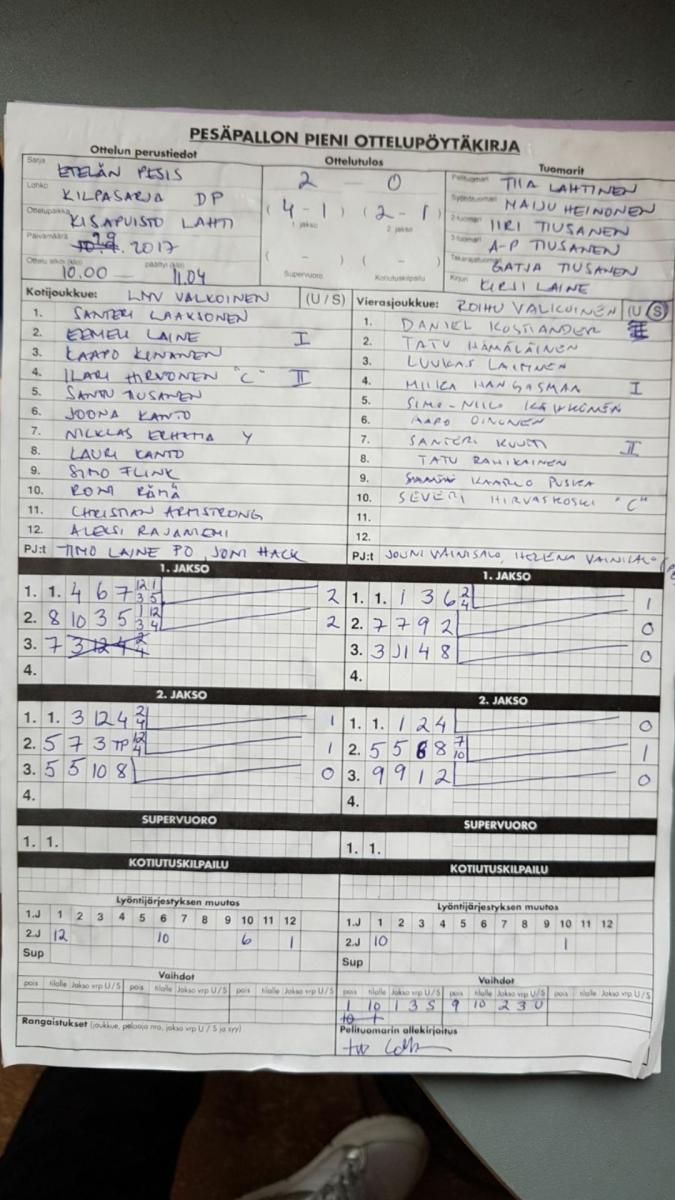 PESÄPALLON PIENI OTTELUPÖYTÄKIRJA
Ottelun perustiedot
Sarja ETELÄN PESIS
Lohko KILPASARJA DP
Ottelupaikka KISAPUISTO LAHTI
Päivämäärä 29 2017
Ottelu alkoi (klo) 10.00 päättyi (klo) 11.04
Ottelutulos
2 - 0
(4-1) (2-1)
1. jakso 2. jakso
( - ) ( - )
Supervuoro Kotiutuskilpailu
Tuomarit
Pelituomari TIIA LAHTINEN
Syöttötuomari MAIJU HEINONEN
2-tuomari IIRI TIUSANEN
3-tuomari A-P TIUSANEN
Takarajatuomari TIUSANEN
Kirjuri KIRSI LAINE
Kotijoukkue: LMV VALKOINEN (U / S)
1. SANTERI LAAKSONEN
2. EEMELI LAINE I
3. KAAPO
4. ILARI HIRVONEN "C" II
5. SANTU TIUSANEN
6. JOONA KANTO
7. NICKLAS Y
8. LAURI KANTO
9. SIMO FLINK
10. RONI RÄMÄ
11. CHRISTIAN ARMSTRONG
12. ALEKSI RAJANIEMI
PJ:t TIMO LAINE PO, JONI HACK
Vierasjoukkue: ROIHU VALKOINEN (U / S)
1. DANIEL KOSTIANDER
2. TATU HÄMÄLÄINEN
3. LUUKAS LAIMINEN
4. MIIKA HANGASMAA I
5. SIMO-NIILO
6. AAPO OINONEN
7. SANTERI KUUTTI II
8. TATU RAHIKAINEN
9. KAARLO PUSKA
10. SEVERI HIRVASKOSKI "C"
11.
12.
PJ:t JOUNI VAINISALO, HELENA VAINISALO
1. JAKSO
1. 1. 4 6 7 12 1 3 5 2
2. 8 10 3 5 1 12 3 4 2
3. 7 3 12 4 2 4
4.
1. JAKSO
1. 1. 1 3 6 2 4 1
2. 7 7 9 2 0
3. 3 1 4 8 0
4.
2. JAKSO
1. 1. 3 12 4 2 4 1
2. 5 7 3 TP 12 4 1
3. 5 5 10 8 0
4.
2. JAKSO
1. 1. 1 2 4 0
2. 5 5 6 8 7 10 1
3. 9 9 1 2 0
4.
SUPERVUORO
1. 1.
SUPERVUORO
1. 1.
KOTIUTUSKILPAILU
KOTIUTUSKILPAILU
Lyöntijärjestyksen muutos
1.J 1 2 3 4 5 6 7 8 9 10 11 12
2.J 12 10 6 1
Sup
Lyöntijärjestyksen muutos
1.J 1 2 3 4 5 6 7 8 9 10 11 12
2.J 10 1
Sup
Vaihdot
pois tilalle Jakso vrp U/S pois tilalle Jakso vrp U/S pois tilalle Jakso vrp U/S
Rangaistukset (joukkue, pelaaja nro, jakso vrp U / S ja syy)
Vaihdot
pois tilalle Jakso vrp U/S pois tilalle Jakso vrp U/S pois tilalle Jakso vrp U/S
1 10 1 3 S 9 10 2 3 U
Pelituomarin allekirjoitus